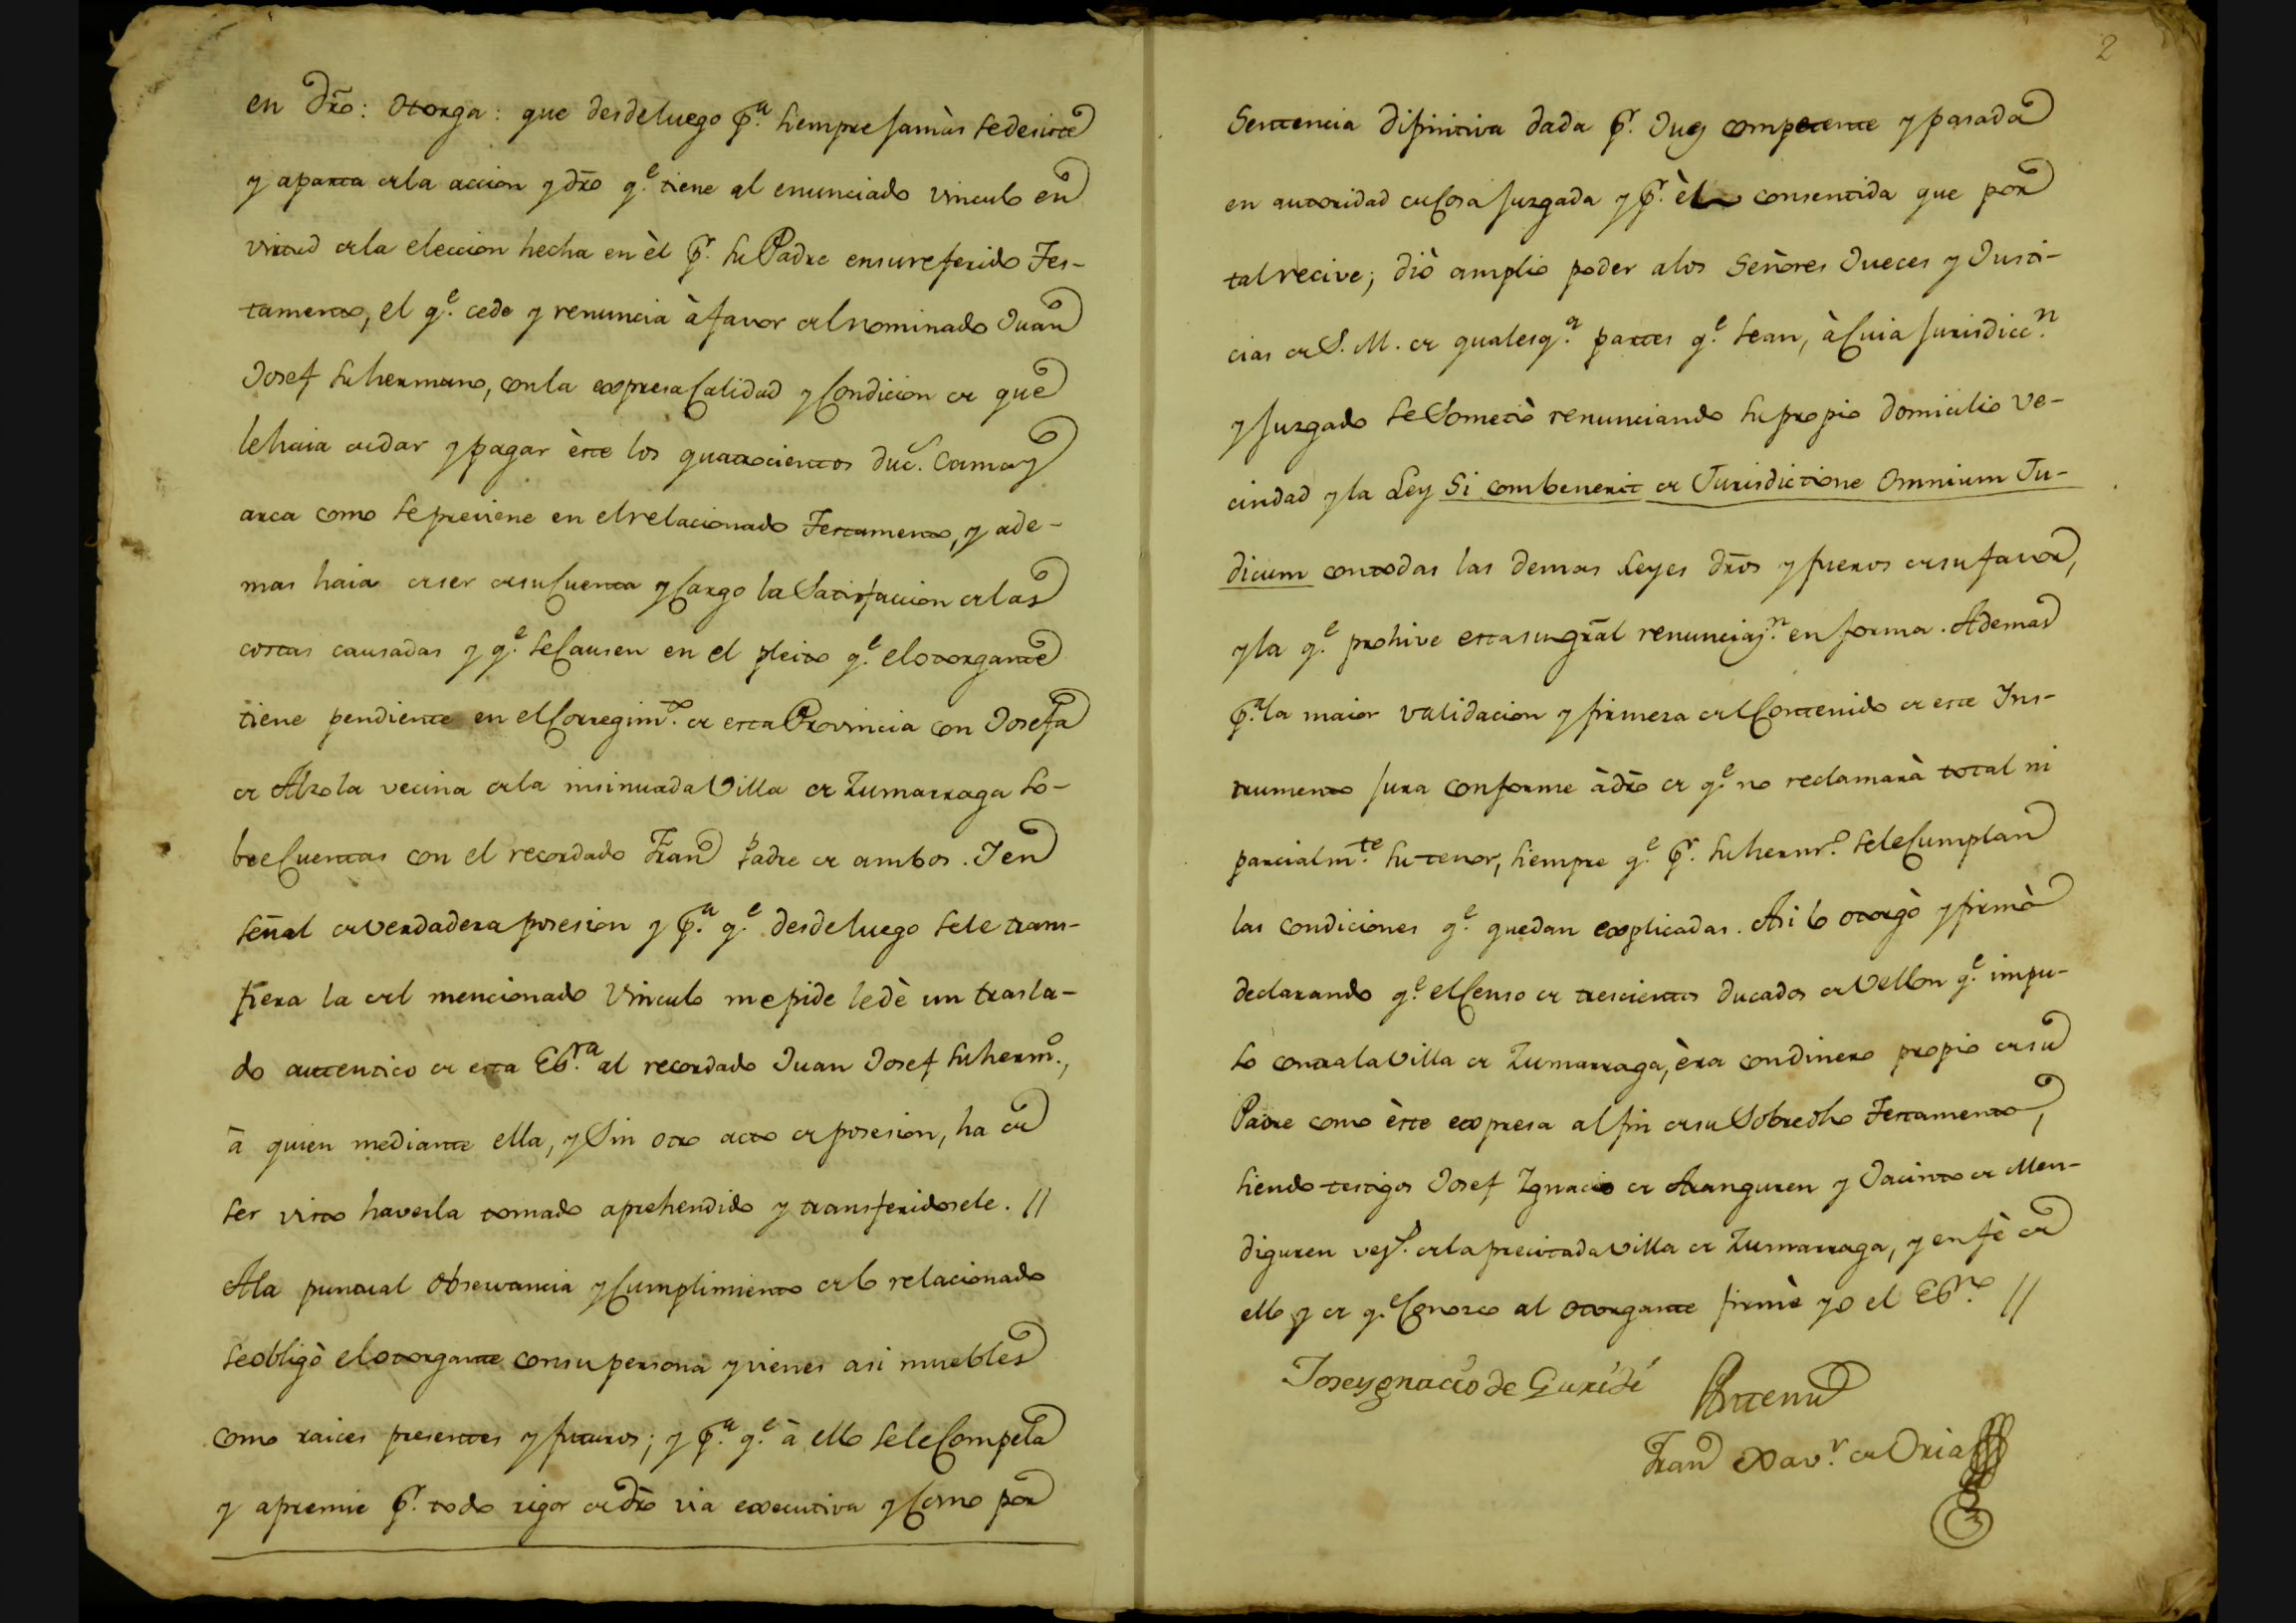 en dr̃o: Otorga: que desdeluego p.ª siempre jamàs sedesiste
y aparta de la accion y dr̃o q.e tiene al enunciado vinculo en
virtud de la eleccion hecha en èl p.r su Padre ensureferido Tes-
tamento, el q.e cede y renuncia à favor del nominado Juan
Josef su hermano, con la expresa Calidad y Condicion de que
le haia de dar y pagar èste los quatrocientos duc.s cama y
arca como se previene en el relacionado Testamento, y ade-
mas haia de ser de su Cuenta y Cargo la Satisfaccion de las
costas causadas y q.e se Causen en el pleito q.e el otorgante
tiene pendiente en el Corregim.to de esta Provincia con Josefa
de Alzola vecina de la insinuada Villa de Zumarraga so-
bre Cuentas con el recordado Fran.co Padre de ambos. Y en
señal de verdadera posesion y p.ª q.e desde luego se le trans-
fiera la del mencionado Vinculo me pide le dè un trasla-
do autentico de esta Es.ra al recordado Juan Josef su herm.o,
à quien mediante ella, y Sin otro acto de posesion, ha de
ser visto haverla tomado aprehendido y transferidosele. //
A la puntual Observancia y Cumplimiento de lo relacionado
se obligò el otorgante con su persona y vienes asi muebles
como raices presentes y futuros; y p.ª q.e à ello se le Compela
y apremie p.r todo rigor de dr̃o via executiva y Como por
2
Sentencia difinitiva dada p.r Juez competente y pasada
en autoridad de Cosa juzgada y p.r èl consentida que por
tal recive; diò amplio poder a los Señores Jueces y Justi-
cias de S. M. de qualesq.ª partes q.e sean, à Cuia jurisdicc.n
y juzgado se Sometiò renunciando su propio domicilio ve-
cindad y la Ley Si combenerit de Jurisdictione Omnium Ju-
dicum con todas las demas Leyes dr̃os y fueros de su favor,
y la q.e prohive esta su gr̃al renunciaz.n en forma. Ademas
p.ª la maior validacion y firmeza del Contenido de este Ins-
trumento jura conforme à dr̃o de q.e no reclamarà total ni
parcialm.te su tenor, siempre q.e p.r su herm.o se le Cumplan
las condiciones q.e quedan explicadas. Asi lo otorgò y firmò
declarando q.e el Censo de trescientos ducados de Vellon q.e impu-
so contra la Villa de Zumarraga, èra con dinero propio de su
Padre como èste expresa al fin de su Sobredho Testamento,
siendo testigos Josef Ygnacio de Aranguren y Jacinto de Men-
diguren vez.s de la precitada Villa de Zumarraga, y en fè de
ello y de q.e Conozco al otorgante firmè yo el Es.no //
Joseygnacio de Guridi
Antemi
Fran.co Xav.r de Oria